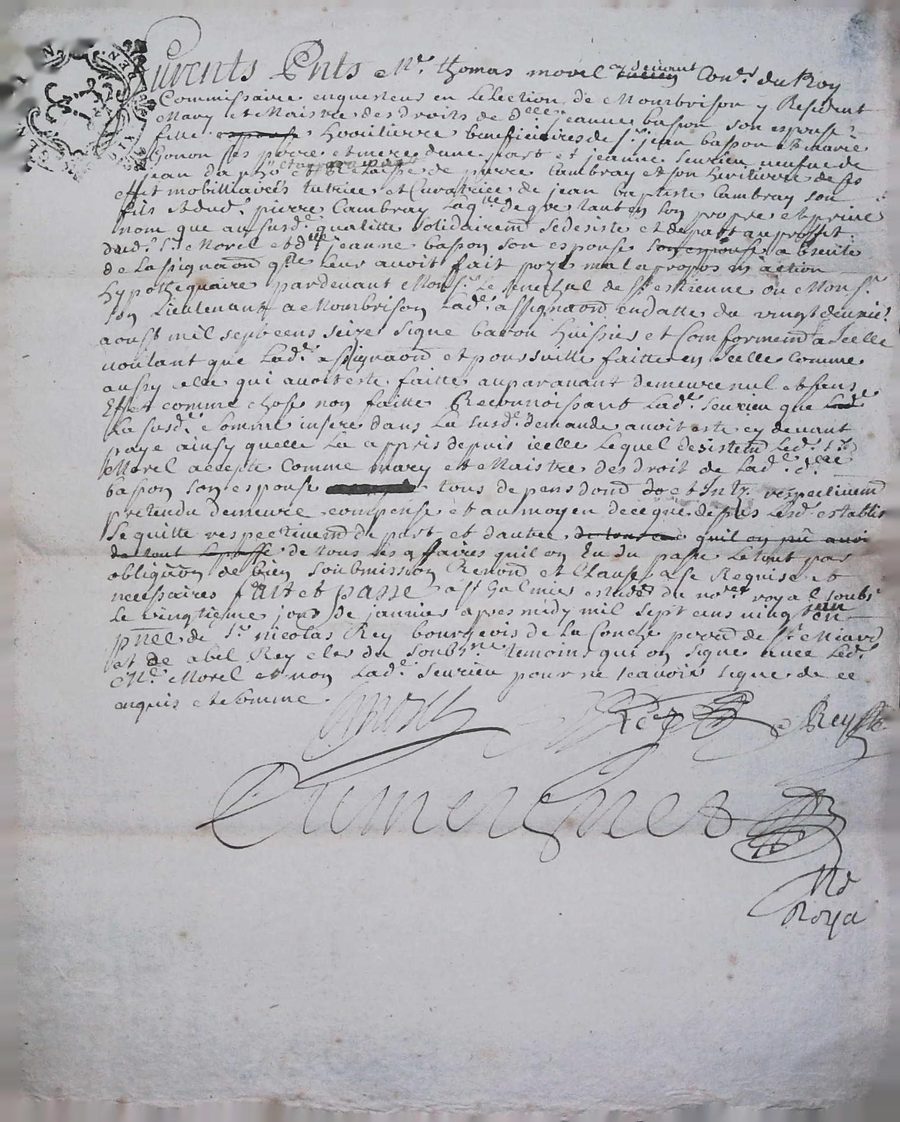 furents Pnts Mr. thomas morel cy devant Conr. du Roy
Commissaire enquesteur en Lelection de Monbrison y Resident
Mary et Maistre des droits de dlle jeanne basson son espouse
fille heritiere beneficiaires de sr. jean basson et marie
Gonon ses perre et mere dune part et jeanne seurieu veufue de
jean de pierre Cambray et son heritierre de
effet mobilliaires tutrice et Curatrice de jean baptiste Cambray son
fils et dud. pierre Cambray laqlle de gre tant en son propre et prive
nom que au susd. qualitte solidairemt se desiste et depart au proffit
dud. sr. Morel et dlle jeanne basson son espouse a
de Lassignaon qlle leur avoit fait poze mal apropos en action
hypothequaire pardevant Monsr. Le senechal de st. estienne ou Monsr.
son Lieutenant a Monbrison Lad. assignaon en datte du vingt
aoust mil sept cens seize signe baron huissier et Conformemt a Icelle
voulant que Lad. assignaon et poursuitte faitte en Icelle comme
aussy celle qui avoit este faitte auparavant demeure nul et sans
Effet comme chose non faitte Reconnoissant Lad. seurieu que
La susd. somme insere dans La susd. demande avoit este cy devant
paye ainsy quelle La appris depuis icelle Lequel desistemt Led. sr.
Morel accepte comme mary et Maistre des droit de Lad. dlle
basson son espouse tous depens dont et Intz. respectivemt
pretendu demeure compense et au moyen de ce que depuis Lesd. establis
se quitte respectivemt de part et dautre de tout ce quil on pu avoir
de tout le passe de tous les affaires quil on Eu du passe Le tout par
obligaon de bien soubmission Renonc et Clause a se Requise et
necessaires fait et passe a st Galmier estude du nore. royal soubsr.
Le vingtieme jour de janvier apres midy mil sept cens vingt un en
pnce de sr. nicolas Rey bourgeois de la Conche perre de st. Medard
et de abel Rey clerc du soubsne temoins qui on signe avec Led.
Mr. Morel et non Lad. seurieu pour ne scavoir signe de ce
enquis et somme
morel Rey Rey

No
Roya